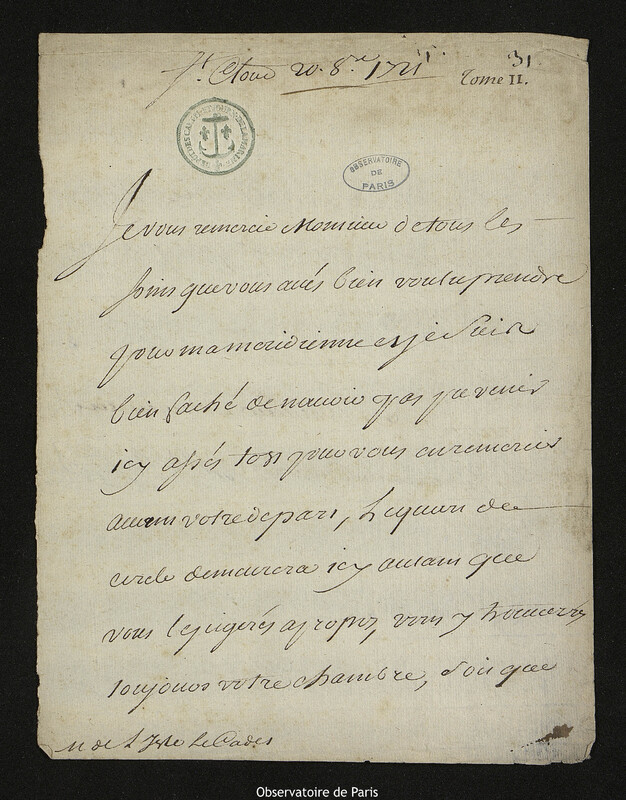 St. Cloud 20. 8.re 1721
31
Tome II.
OBSERVATOIRE
DE
PARIS
Je vous remercie Monsieur de tous les
soins que vous avés bien voulu prendre
pour ma meridienne et je suis
bien faché de n'avoir pas pu venir
icy assés tost pour vous en remercier
avant votre depart, le quart de
cercle demeurera icy autant que
vous le jugerés a propos, vous y trouverez
toujours votre chambre, soit que
M de L'Isle Le Cadet
Observatoire de Paris